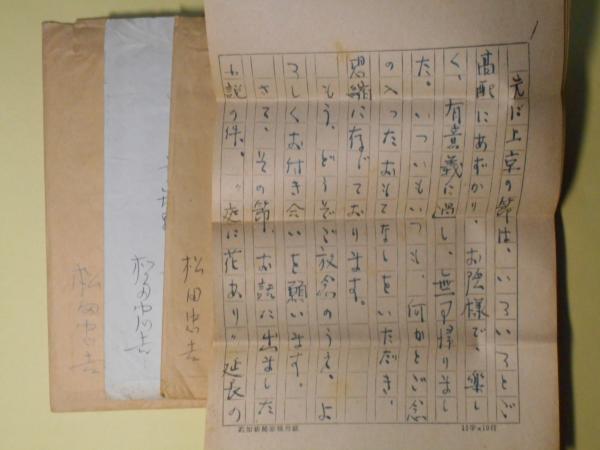 先に上京の節は、いろいろとご
高配にあずかり、お陰様で、楽し
く、有意義に過し、無事帰りまし
た。いついもいつも、何かとご念
の入ったおもてなしをいただき、
恐縮に存じております。
もう、どうぞご放念のうえ、よ
ろしくお付き合いを願います。
さて、その節、お話に出ました
小説の件。〃庭に花あり〃延長の
松田忠吉
松田忠吉
松田忠吉
15字×10行